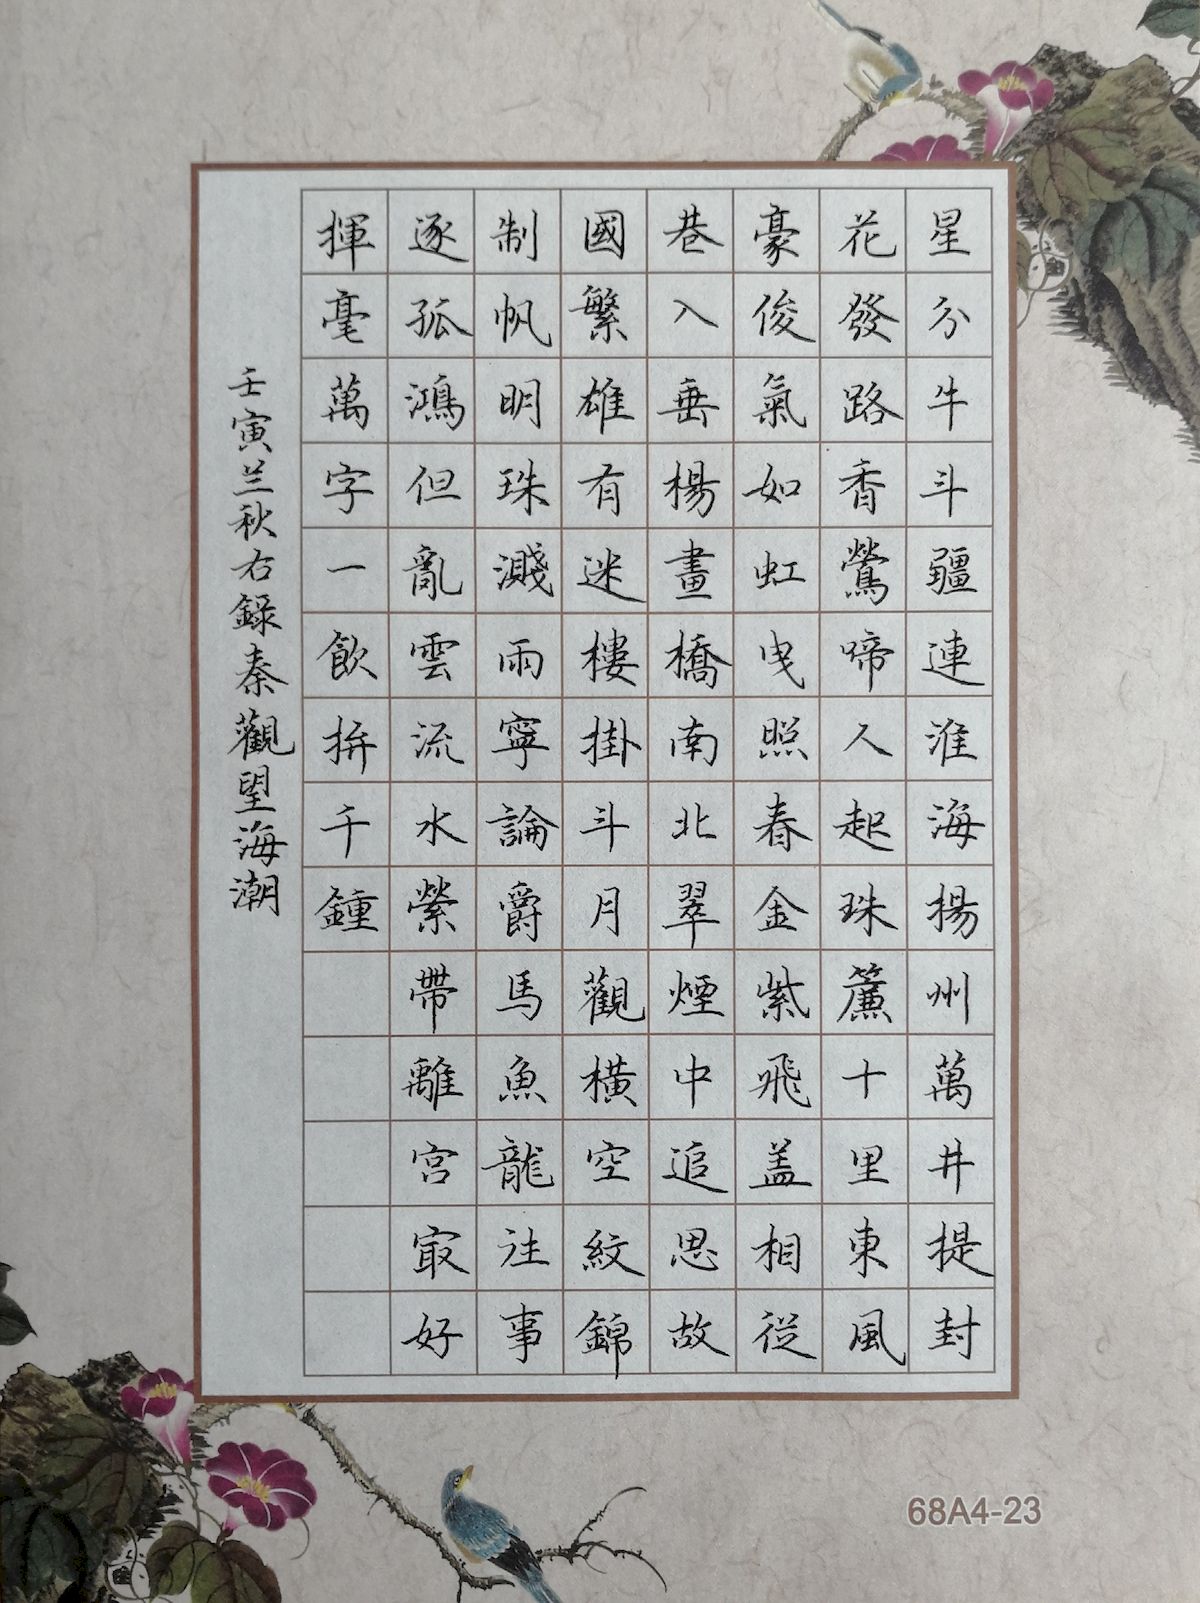 星分牛斗疆連淮海揚州萬井提封
花發路香鶯啼人起珠簾十里東風
豪俊氣如虹曳照春金紫飛盖相從
巷入垂楊畫橋南北翠煙中追思故
國繁雄有迷樓掛斗月觀橫空紋錦
制帆明珠濺雨寧論爵馬魚龍注事
逐孤鴻但亂雲流水縈帶離宮最好
揮毫萬字一飲拚千鍾
壬寅兰秋右錄秦觀望海潮
68A4-23